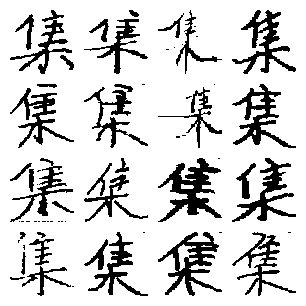 集集集集
集集集集
集集集集
集集集集